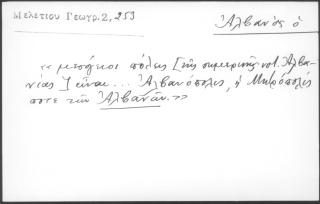 Μελετίου Γεωγρ. 2, 253
Ἀλβανὸς ὁ
«μεσόγειοι πόλεις [τῆς σημερινῆς νοτ. Ἀλβα-
νίας] εἶναι... Ἀλβανόπολις, ἡ Μητρόπολίς
ποτε τῶν Ἀλβανῶν.»